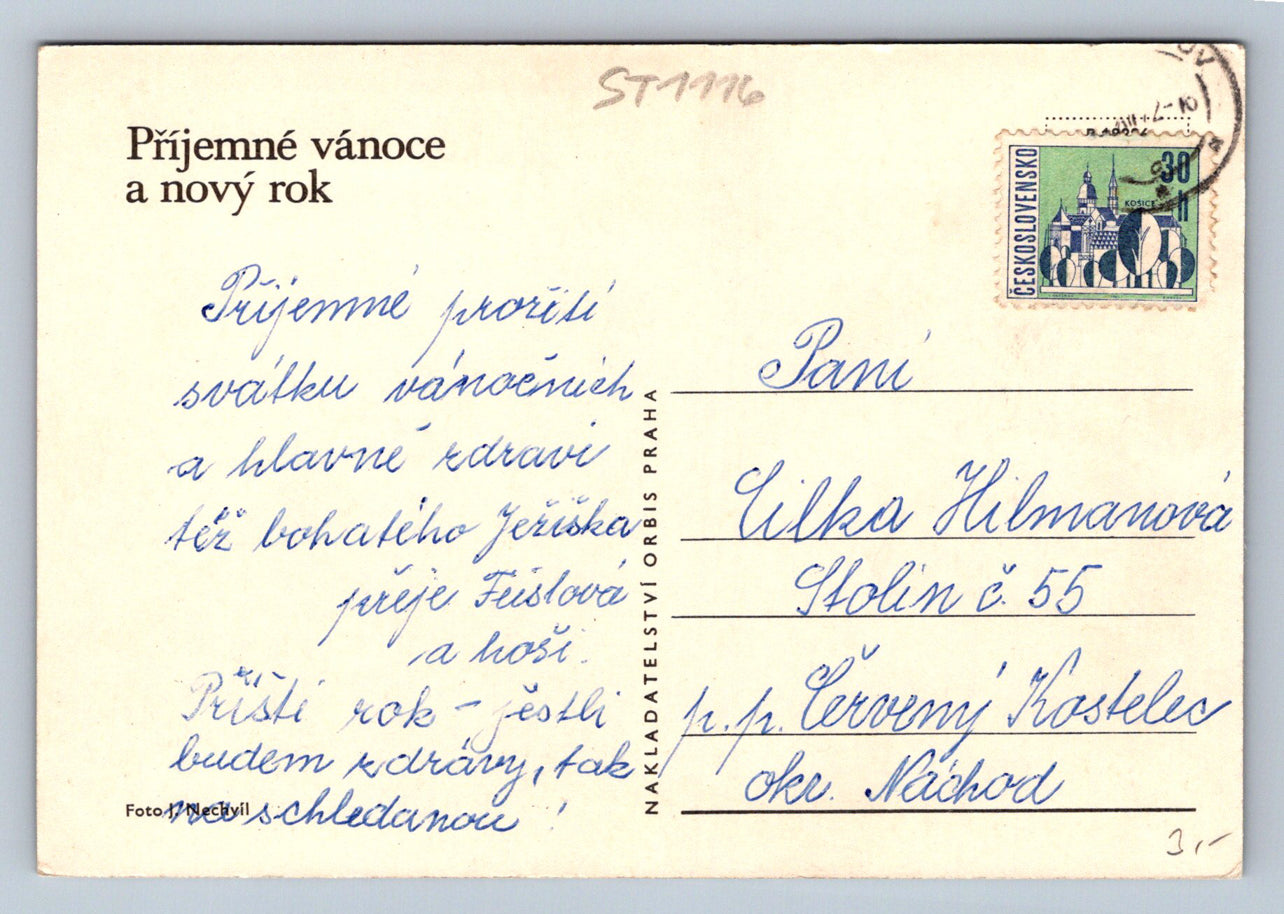 ST1116
Příjemné vánoce
a nový rok
ČESKOSLOVENSKO
30
h
KOŠICE
Příjemné prožití
svátku vánočních
a hlavně zdraví
též bohatého Ježíška
přeje Feislová
a hoši.
Příští rok – jestli
budem zdrávy, tak
na schledanou!
Foto J. Nechvíl
NAKLADATELSTVÍ ORBIS PRAHA
Paní
Cilka Hilmanová
Stolin č. 55
p.p. Červený Kostelec
okr. Náchod
3,-